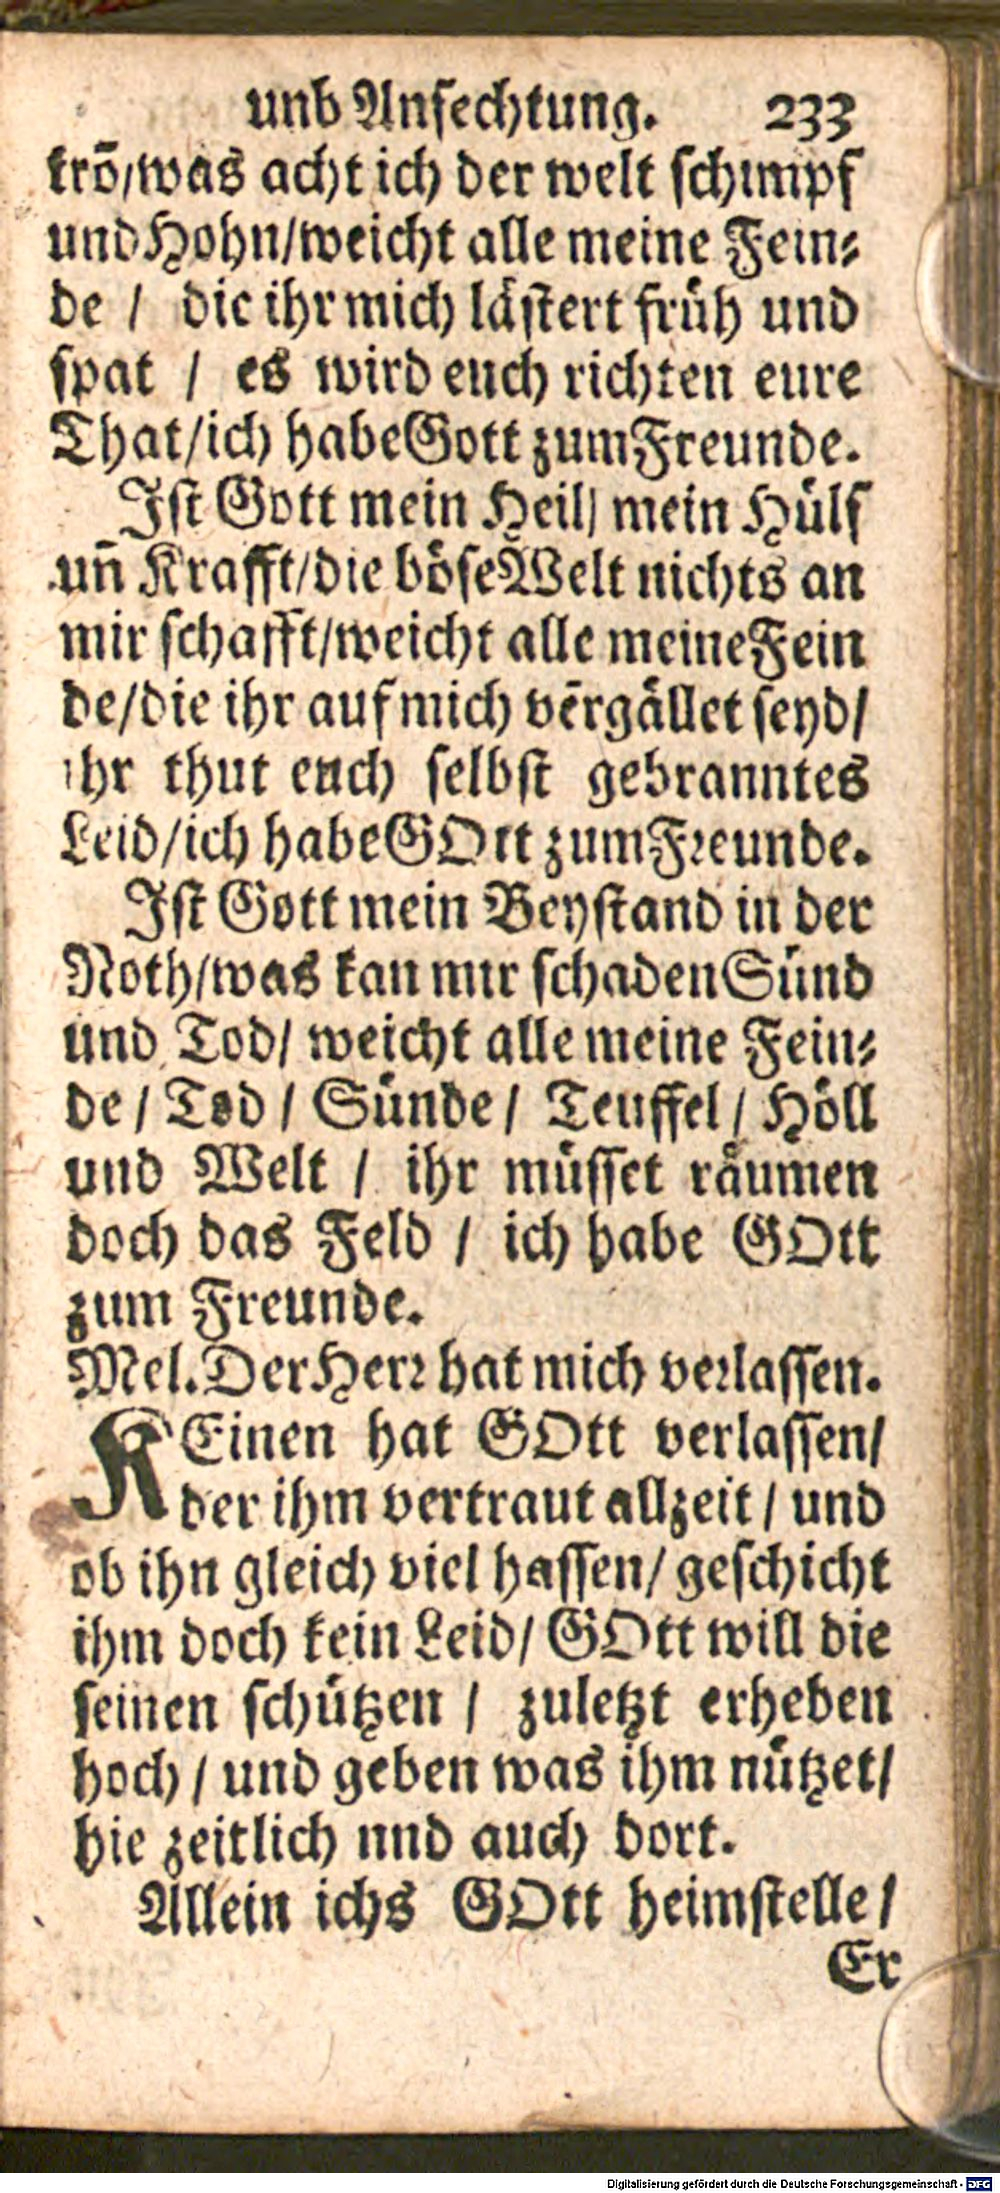 unb Anfechtung. 233
krō/was acht ich der welt schimpf
und Hohn/weicht alle meine Fein-
de / die ihr mich lästert früh und
spat / es wird euch richten eure
That/ich habe Gott zum Freunde.
Ist Gott mein Heil/ mein Hülf
uñ Krafft/die böse Welt nichts an
mir schafft/weicht alle meine Fein
de/die ihr auf mich vērgället seyd/
ihr thut euch selbst gebranntes
Leid/ich habe GOtt zum Freunde.
Ist Gott mein Beystand in der
Noth/was kan mir schaden Sünd
und Tod/ weicht alle meine Fein-
de / Tod / Sünde / Teuffel / Höll
und Welt / ihr müsset räumen
doch das Feld / ich habe GOtt
zum Freunde.
Mel. Der Herr hat mich verlassen.
KEinen hat GOtt verlassen/
der ihm vertraut allzeit / und
ob ihn gleich viel hassen/ geschicht
ihm doch kein Leid/ GOtt will die
seinen schützen / zuletzt erheben
hoch / und geben was ihm nützet/
hie zeitlich und auch dort.
Allein ichs GOtt heimstelle/
Er
Digitalisierung gefördert durch die Deutsche Forschungsgemeinschaft - DFG